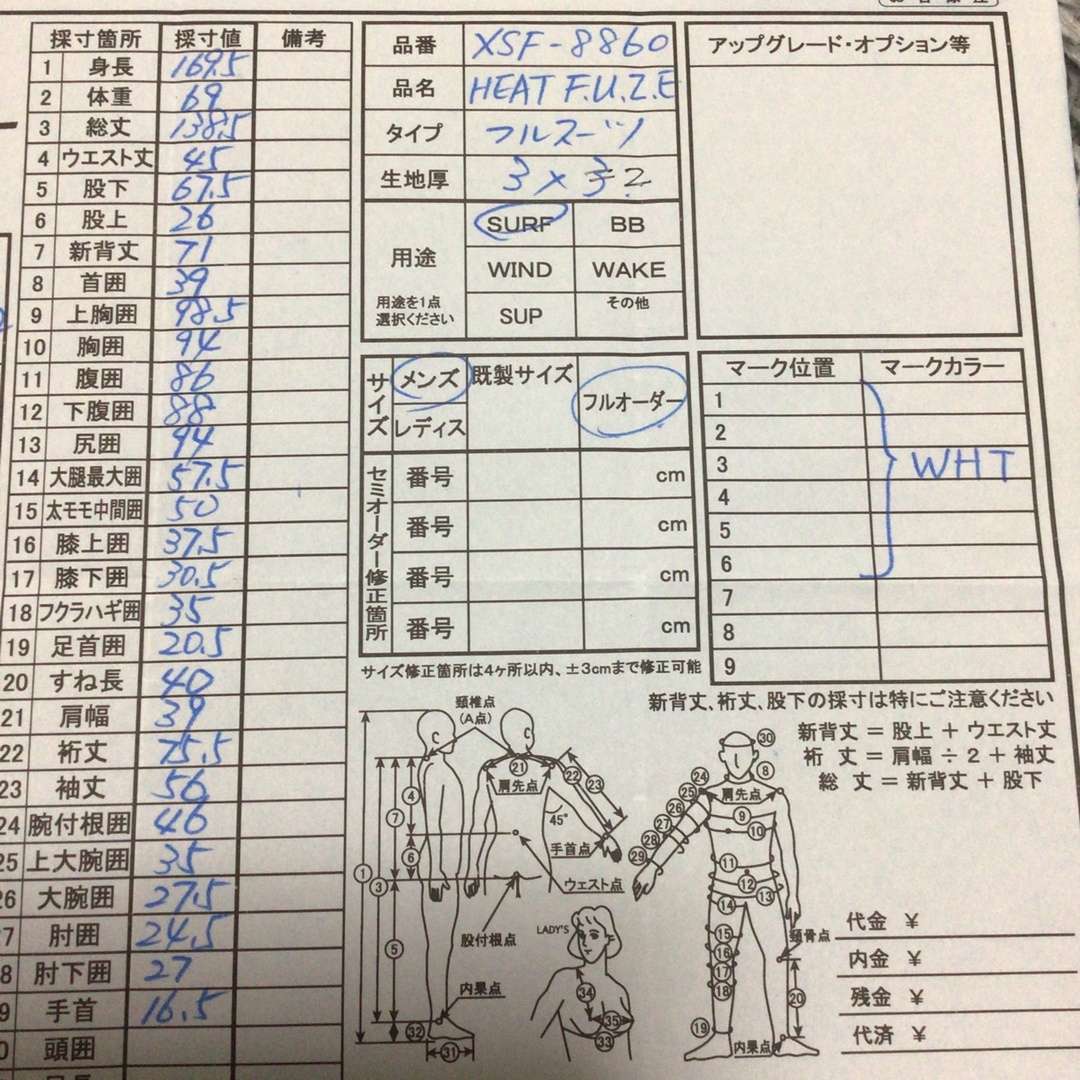 採寸箇所 採寸値 備考
1 身長 169.5
2 体重 69
3 総丈 138.5
4 ウエスト丈 45
5 股下 67.5
6 股上 26
7 新背丈 71
8 首囲 39
9 上胸囲 98.5
10 胸囲 94
11 腹囲 86
12 下腹囲 88
13 尻囲 94
14 大腿最大囲 57.5
15 太モモ中間囲 50
16 膝上囲 37.5
17 膝下囲 30.5
18 フクラハギ囲 35
19 足首囲 20.5
20 すね長 40
21 肩幅 39
22 裄丈 75.5
23 袖丈 56
24 腕付根囲 46
25 上大腕囲 35
26 大腕囲 27.5
7 肘囲 24.5
8 肘下囲 27
9 手首 16.5
0 頭囲
品番 XSF-8860
品名 HEAT F.U.Z.E
タイプ フルスーツ
生地厚 3×3 2
用途
用途を1点
選択ください
SURF BB
WIND WAKE
SUP その他
サイズ メンズ 既製サイズ フルオーダー
レディス
セミオーダー修正箇所
番号 cm
番号 cm
番号 cm
番号 cm
サイズ修正箇所は4ヶ所以内、±3cmまで修正可能
アップグレード・オプション等
マーク位置 マークカラー
1
2
3 WHT
4
5
6
7
8
9
新背丈、裄丈、股下の採寸は特にご注意ください
新背丈 = 股上 + ウエスト丈
裄 丈 = 肩幅 ÷ 2 + 袖丈
総 丈 = 新背丈 + 股下
頸椎点
(A点)
C C
㉑
肩先点
㉒ ㉓
④
⑦
45°
手首点
⑥
ウェスト点
① ③
⑤
股付根点
LADY'S
内果点
㉞
㉟
㉝
㉜
㉛
㉚
⑧
㉔
㉕ 肩先点
㉖ ⑨
㉗ ⑩
㉘
㉙
⑪
⑫
⑬
⑭
⑮
⑯
⑰
⑱
⑳
⑲
内果点
代金 ¥
内金 ¥
残金 ¥
代済 ¥